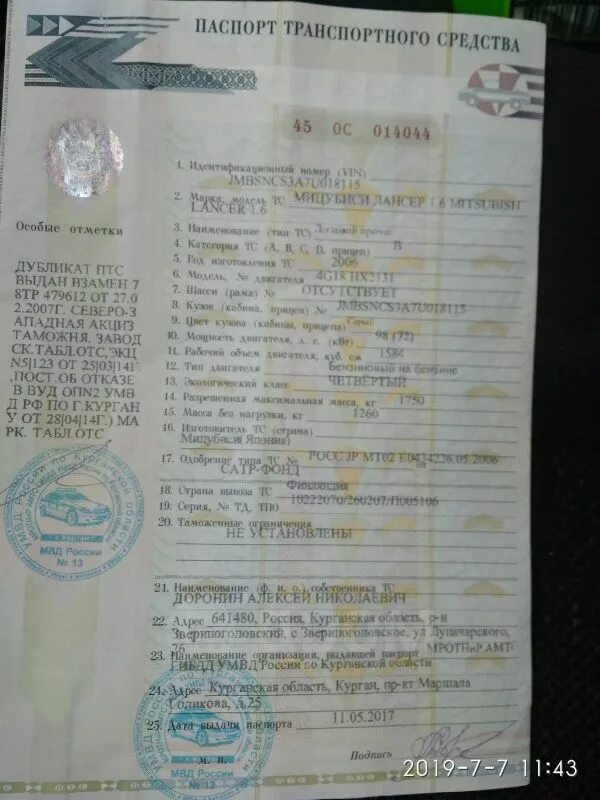 ПАСПОРТ ТРАНСПОРТНОГО СРЕДСТВА
45 ОС 014044
1. Идентификационный номер (VIN)
JMBSNCS3A7U018115
2. Марка, модель ТС МИЦУБИСИ ЛАНСЕР 1.6 MITSUBISHI
LANCER 1.6
3. Наименование (тип ТС) Легковой прочее
4. Категория ТС (А, В, С, D, прицеп) В
5. Год изготовления ТС 2006
6. Модель, № двигателя 4G18 HX2131
7. Шасси (рама) № ОТСУТСТВУЕТ
8. Кузов (кабина, прицеп) № JMBSNCS3A7U018115
9. Цвет кузова (кабина, прицепа)
10. Мощность двигателя, л. с. (кВт) 98 (72)
11. Рабочий объем двигателя, куб. см 1584
12. Тип двигателя Бензиновый на бензине
13. Экологический класс ЧЕТВЕРТЫЙ
14. Разрешенная максимальная масса, кг 1750
15. Масса без нагрузки, кг 1260
16. Изготовитель ТС (страна)
Мицубиси(Япония)
17. Одобрение типа ТС № РОСС JP МТ02 Е0434226.05.2006
от
САТР-ФОНД
18. Страна вывоза ТС Финляндия
19. Серия, № ТД, ТПО 10222070/260207/П005106
20. Таможенные ограничения
НЕ УСТАНОВЛЕНЫ
21. Наименование (ф. и. о.) собственника ТС
ДОРОНИН АЛЕКСЕЙ НИКОЛАЕВИЧ
22. Адрес 641480, Россия, Курганская область, р-н
Звериноголовский, с Звериноголовское, ул Луначарского,
26
23. Наименование организации, выдавшей паспорт МРОТНиР АМТ
ГИБДД УМВД России по Курганской области
24. Адрес Курганская область, Курган, пр-кт Маршала
Голикова, д.25
25. Дата выдачи паспорта 11.05.2017
М. П.
Подпись
Особые отметки
ДУБЛИКАТ ПТС
ВЫДАН ВЗАМЕН 7
8ТР 479612 ОТ 27.0
2.2007Г. СЕВЕРО-З
АПАДНАЯ АКЦИЗ
ТАМОЖНЯ. ЗАВОД
СК.ТАБЛ.ОТС,ЭКЦ
N5|123 ОТ 25|03|14Г
,ПОСТ.ОБ ОТКАЗЕ
В ВУД ОПN2 УМВ
Д РФ ПО Г.КУРГАН
У ОТ 28|04|14Г.) МА
РК. ТАБЛ.ОТС
УМВД России по Курганской области
г.Курган
МВД России
№ 13
МВД России
№ 13
2019-7-7 11:43